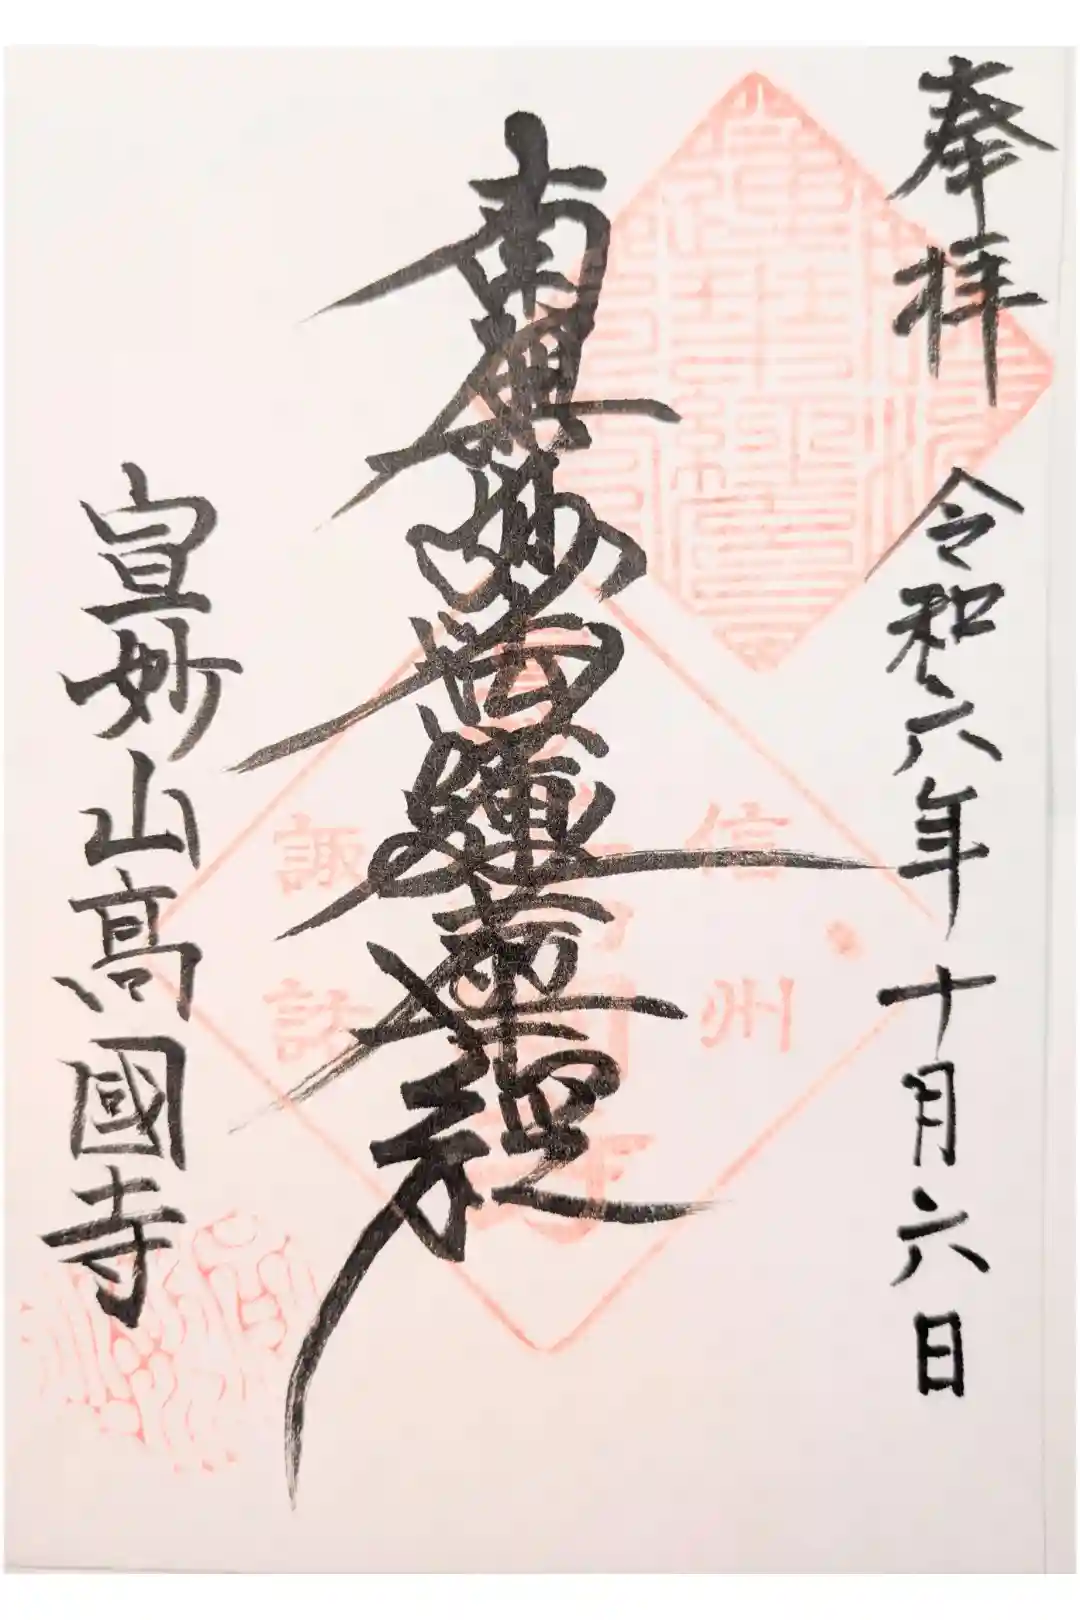 奉拝
令和六年十月六日
南無妙法蓮華経
宣妙山高國寺
信州
諏訪